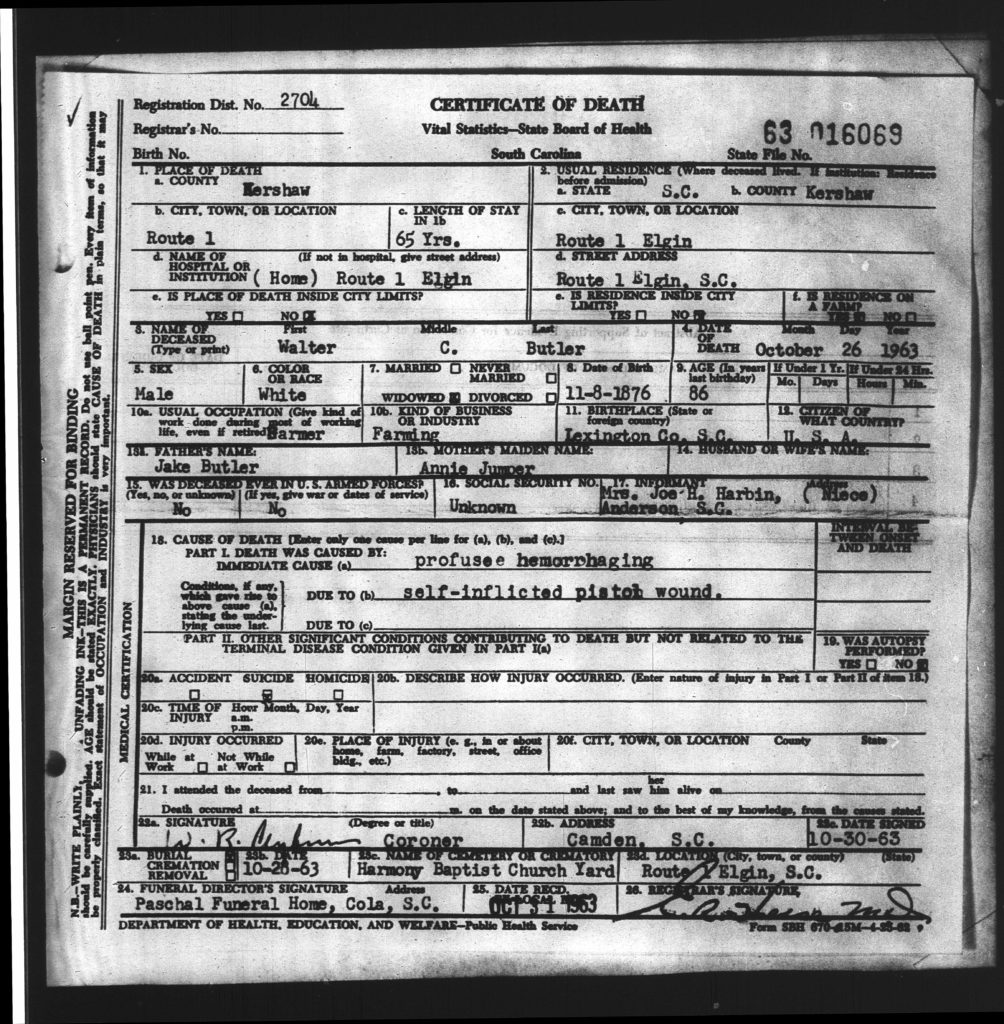 Registration Dist. No. 2704
CERTIFICATE OF DEATH
Registrar's No.
Vital Statistics—State Board of Health
63 016069
Birth No.
South Carolina
State File No.
1. PLACE OF DEATH
a. COUNTY Kershaw
2. USUAL RESIDENCE (Where deceased lived. If institution: Residence before admission)
a. STATE S.C. b. COUNTY Kershaw
b. CITY, TOWN, OR LOCATION
Route 1
c. LENGTH OF STAY IN 1b
65 Yrs.
c. CITY, TOWN, OR LOCATION
Route 1 Elgin
d. NAME OF HOSPITAL OR INSTITUTION (If not in hospital, give street address)
(Home) Route 1 Elgin
d. STREET ADDRESS
Route 1 Elgin, S.C.
e. IS PLACE OF DEATH INSIDE CITY LIMITS?
YES NO
e. IS RESIDENCE INSIDE CITY LIMITS?
YES NO
f. IS RESIDENCE ON A FARM?
YES NO
3. NAME OF DECEASED (Type or print)
First Middle Last
Walter C. Butler
4. DATE OF DEATH
Month Day Year
October 26 1963
5. SEX
Male
6. COLOR OR RACE
White
7. MARRIED NEVER MARRIED
WIDOWED DIVORCED
8. Date of Birth
11-8-1876
9. AGE (In years last birthday)
86
If Under 1 Yr.
Mo. Days
If Under 24 Hrs.
Hours Min.
10a. USUAL OCCUPATION (Give kind of work done during most of working life, even if retired)
Farmer
10b. KIND OF BUSINESS OR INDUSTRY
Farming
11. BIRTHPLACE (State or foreign country)
Lexington Co. S.C.
12. CITIZEN OF WHAT COUNTRY?
U. S. A.
13a. FATHER'S NAME:
Jake Butler
13b. MOTHER'S MAIDEN NAME:
Annie Jumper
14. HUSBAND OR WIFE'S NAME:
15. WAS DECEASED EVER IN U. S. ARMED FORCES?
(Yes, no, or unknown) (If yes, give war or dates of service)
No No
16. SOCIAL SECURITY NO.
Unknown
17. INFORMANT Address
Mrs. Joe H. Harbin, (Niece)
Anderson S.C.
MEDICAL CERTIFICATION
18. CAUSE OF DEATH [Enter only one cause per line for (a), (b), and (c).]
INTERVAL BETWEEN ONSET AND DEATH
PART I. DEATH WAS CAUSED BY:
IMMEDIATE CAUSE (a) profusee hemorrhaging
Conditions, if any, which gave rise to above cause (a), stating the underlying cause last.
DUE TO (b) self-inflicted pistol wound.
DUE TO (c)
PART II. OTHER SIGNIFICANT CONDITIONS CONTRIBUTING TO DEATH BUT NOT RELATED TO THE TERMINAL DISEASE CONDITION GIVEN IN PART I(a)
19. WAS AUTOPSY PERFORMED?
YES NO
20a. ACCIDENT SUICIDE HOMICIDE
20b. DESCRIBE HOW INJURY OCCURRED. (Enter nature of injury in Part I or Part II of item 18.)
20c. TIME OF INJURY Hour Month, Day, Year
a.m.
p.m.
20d. INJURY OCCURRED
While at Work Not While at Work
20e. PLACE OF INJURY (e. g., in or about home, farm, factory, street, office bldg., etc.)
20f. CITY, TOWN, OR LOCATION County State
21. I attended the deceased from , to and last saw her him alive on
Death occurred at m. on the date stated above; and to the best of my knowledge, from the causes stated.
22a. SIGNATURE (Degree or title)
W. R. Coroner
22b. ADDRESS
Camden, S.C.
22c. DATE SIGNED
10-30-63
23a. BURIAL
CREMATION
REMOVAL
23b. DATE
10-28-63
23c. NAME OF CEMETERY OR CREMATORY
Harmony Baptist Church Yard
23d. LOCATION (City, town, or county) (State)
Route 1 Elgin, S.C.
24. FUNERAL DIRECTOR'S SIGNATURE Address
Paschal Funeral Home, Cola, S.C.
25. DATE RECD. BY LOCAL REG.
OCT 31 1963
26. REGISTRAR'S SIGNATURE
DEPARTMENT OF HEALTH, EDUCATION, AND WELFARE—Public Health Service
Form SBH 670-15M-4-25-62
MARGIN RESERVED FOR BINDING
N.B. WRITE PLAINLY, UNFADING INK—THIS IS A PERMANENT RECORD. Do not use ball point pen. Every item of information
should be carefully supplied. AGE should be stated EXACTLY. PHYSICIANS should state CAUSE OF DEATH in plain terms, so that it may
be properly classified. Exact statement of OCCUPATION and INDUSTRY is very important.